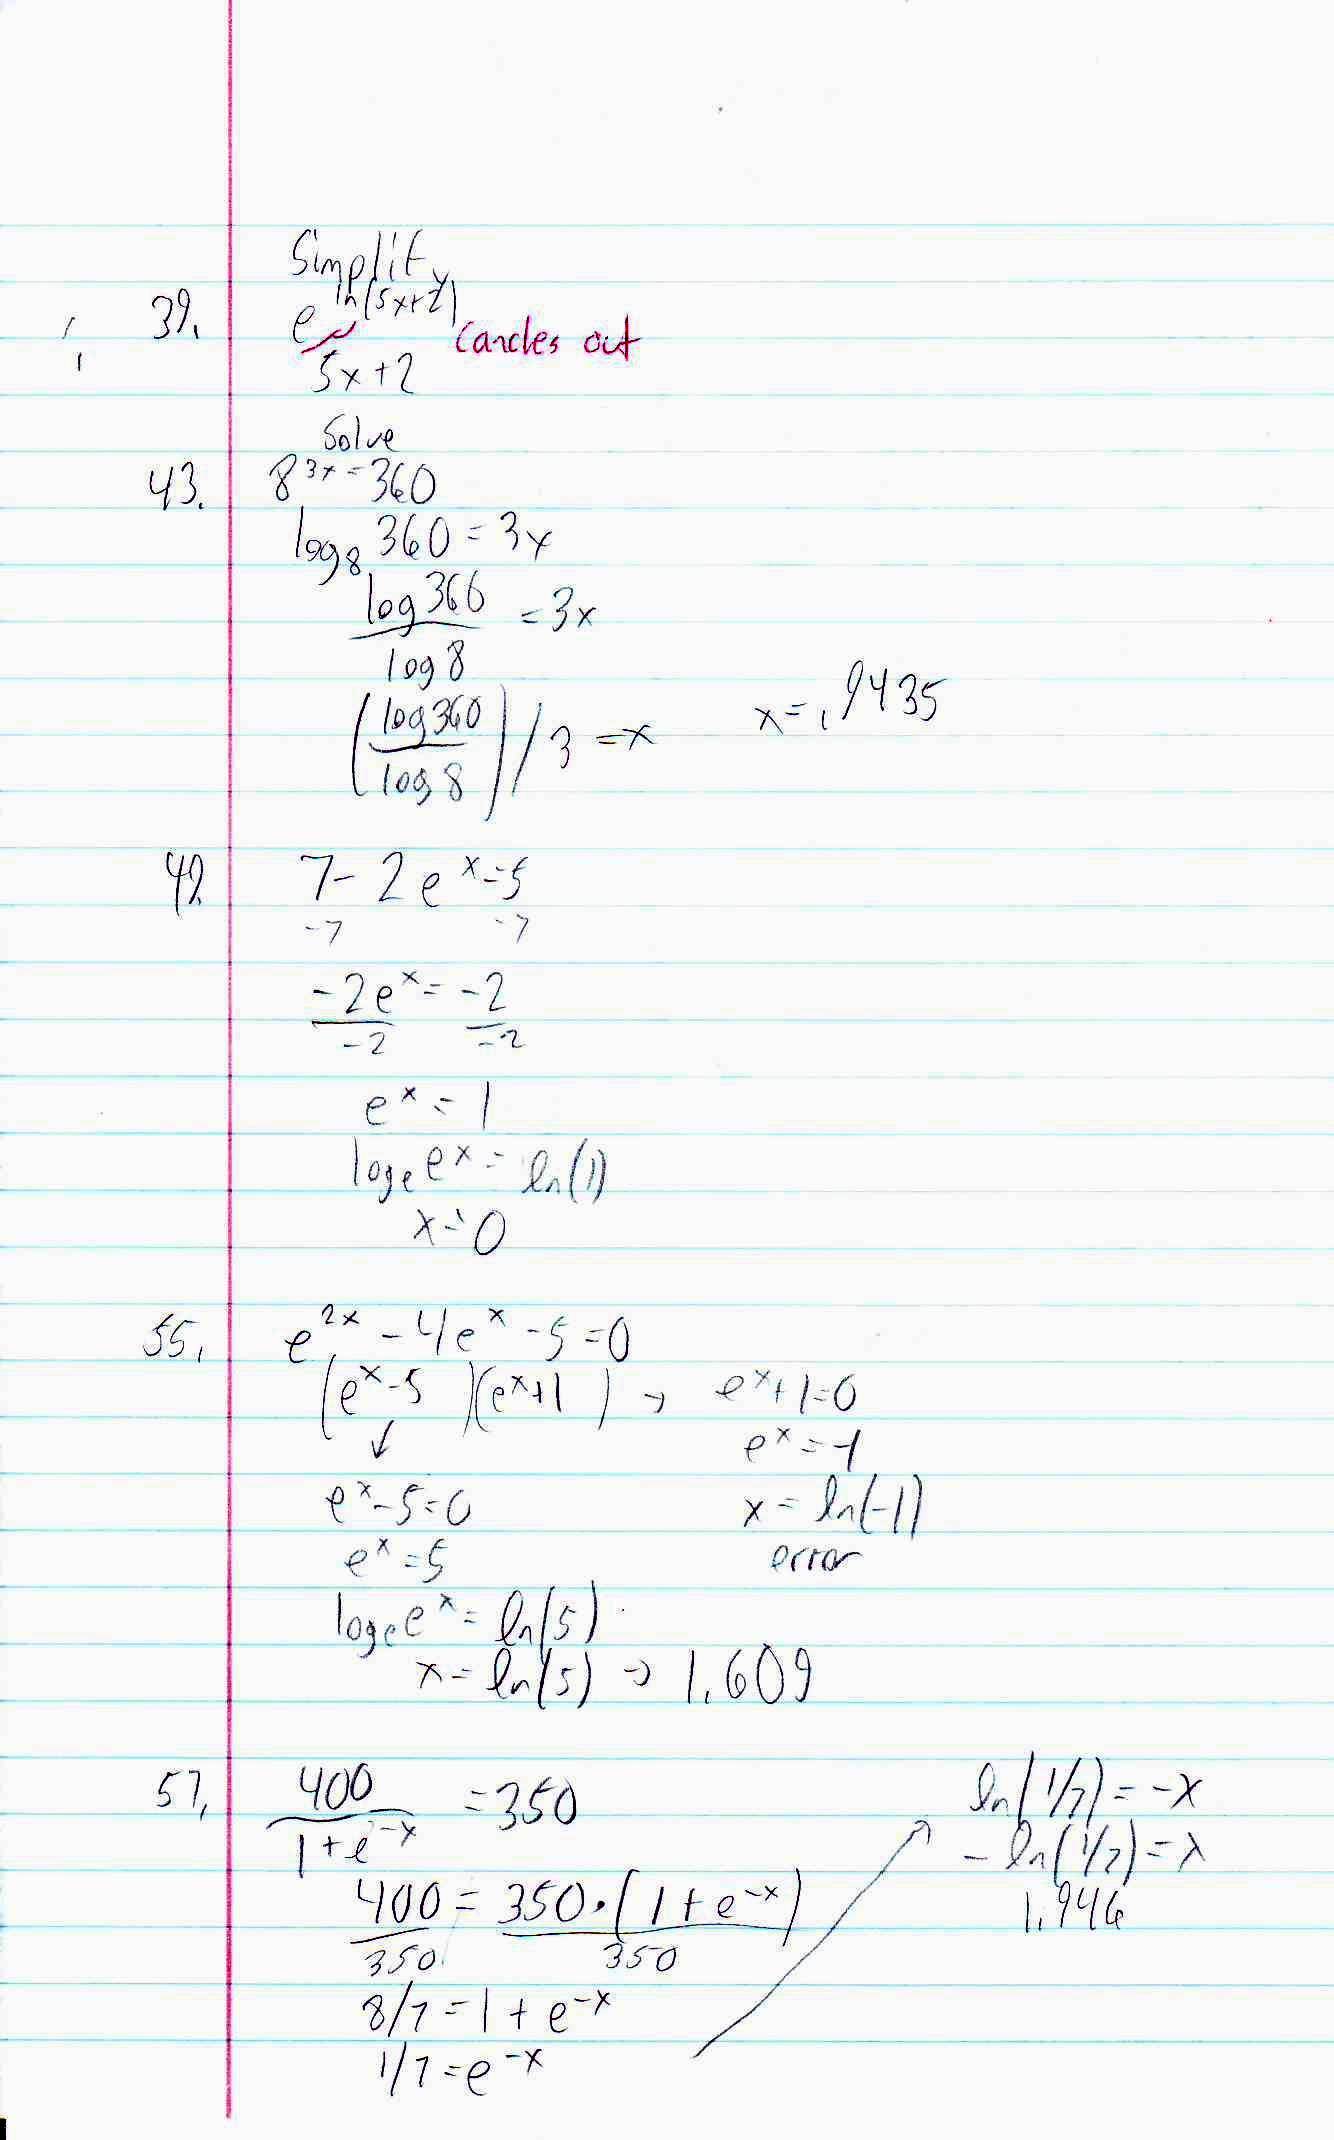 Simplify
39. e^ln(5x+2) Cancles out
5x+2
Solve
43. 8^3x = 360
log₈ 360 = 3x
log 360 / log 8 = 3x
(log 360 / log 8) / 3 = x x = .9435
49. 7 - 2e^x = 5
-7 -7
-2e^x = -2
-2 -2
e^x = 1
logₑ e^x = ln(1)
x = 0
55. e^2x - 4e^x - 5 = 0
(e^x - 5)(e^x + 1) → e^x + 1 = 0
↓ e^x = -1
e^x - 5 = 0 x = ln(-1)
e^x = 5 error
logₑ e^x = ln(5)
x = ln(5) → 1.609
57. 400 / 1 + e^-x = 350
400 = 350 · (1 + e^-x)
350 350
8/7 = 1 + e^-x
1/7 = e^-x
ln(1/7) = -x
- ln(1/7) = x
1.946